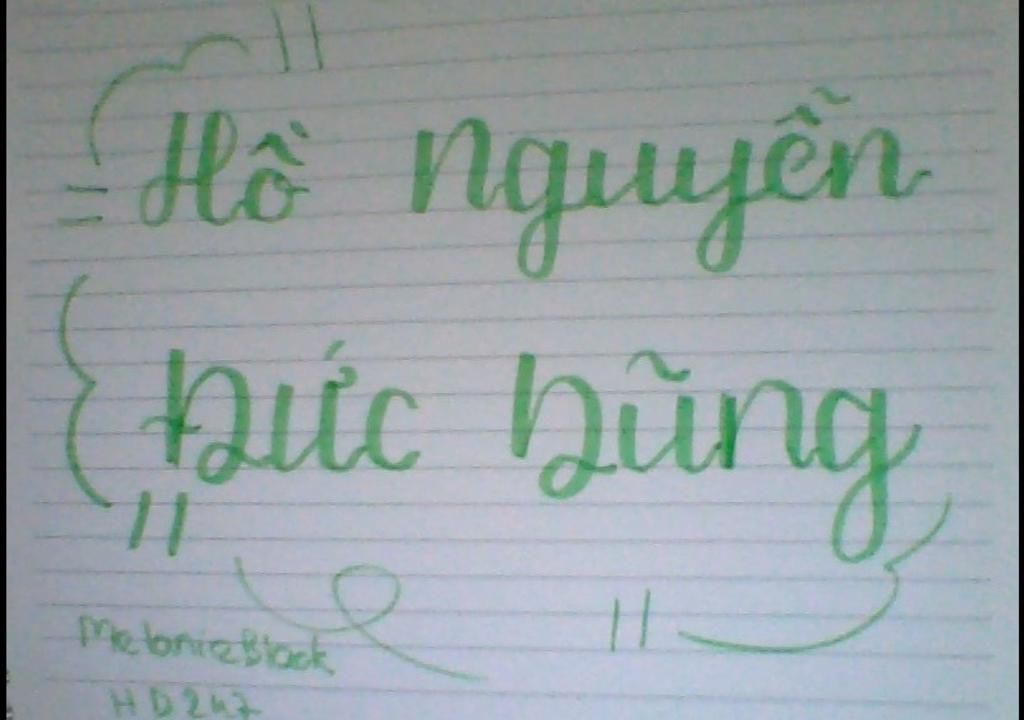 Hồ Nguyễn
Đức Dũng
MelanieBlack
HD247